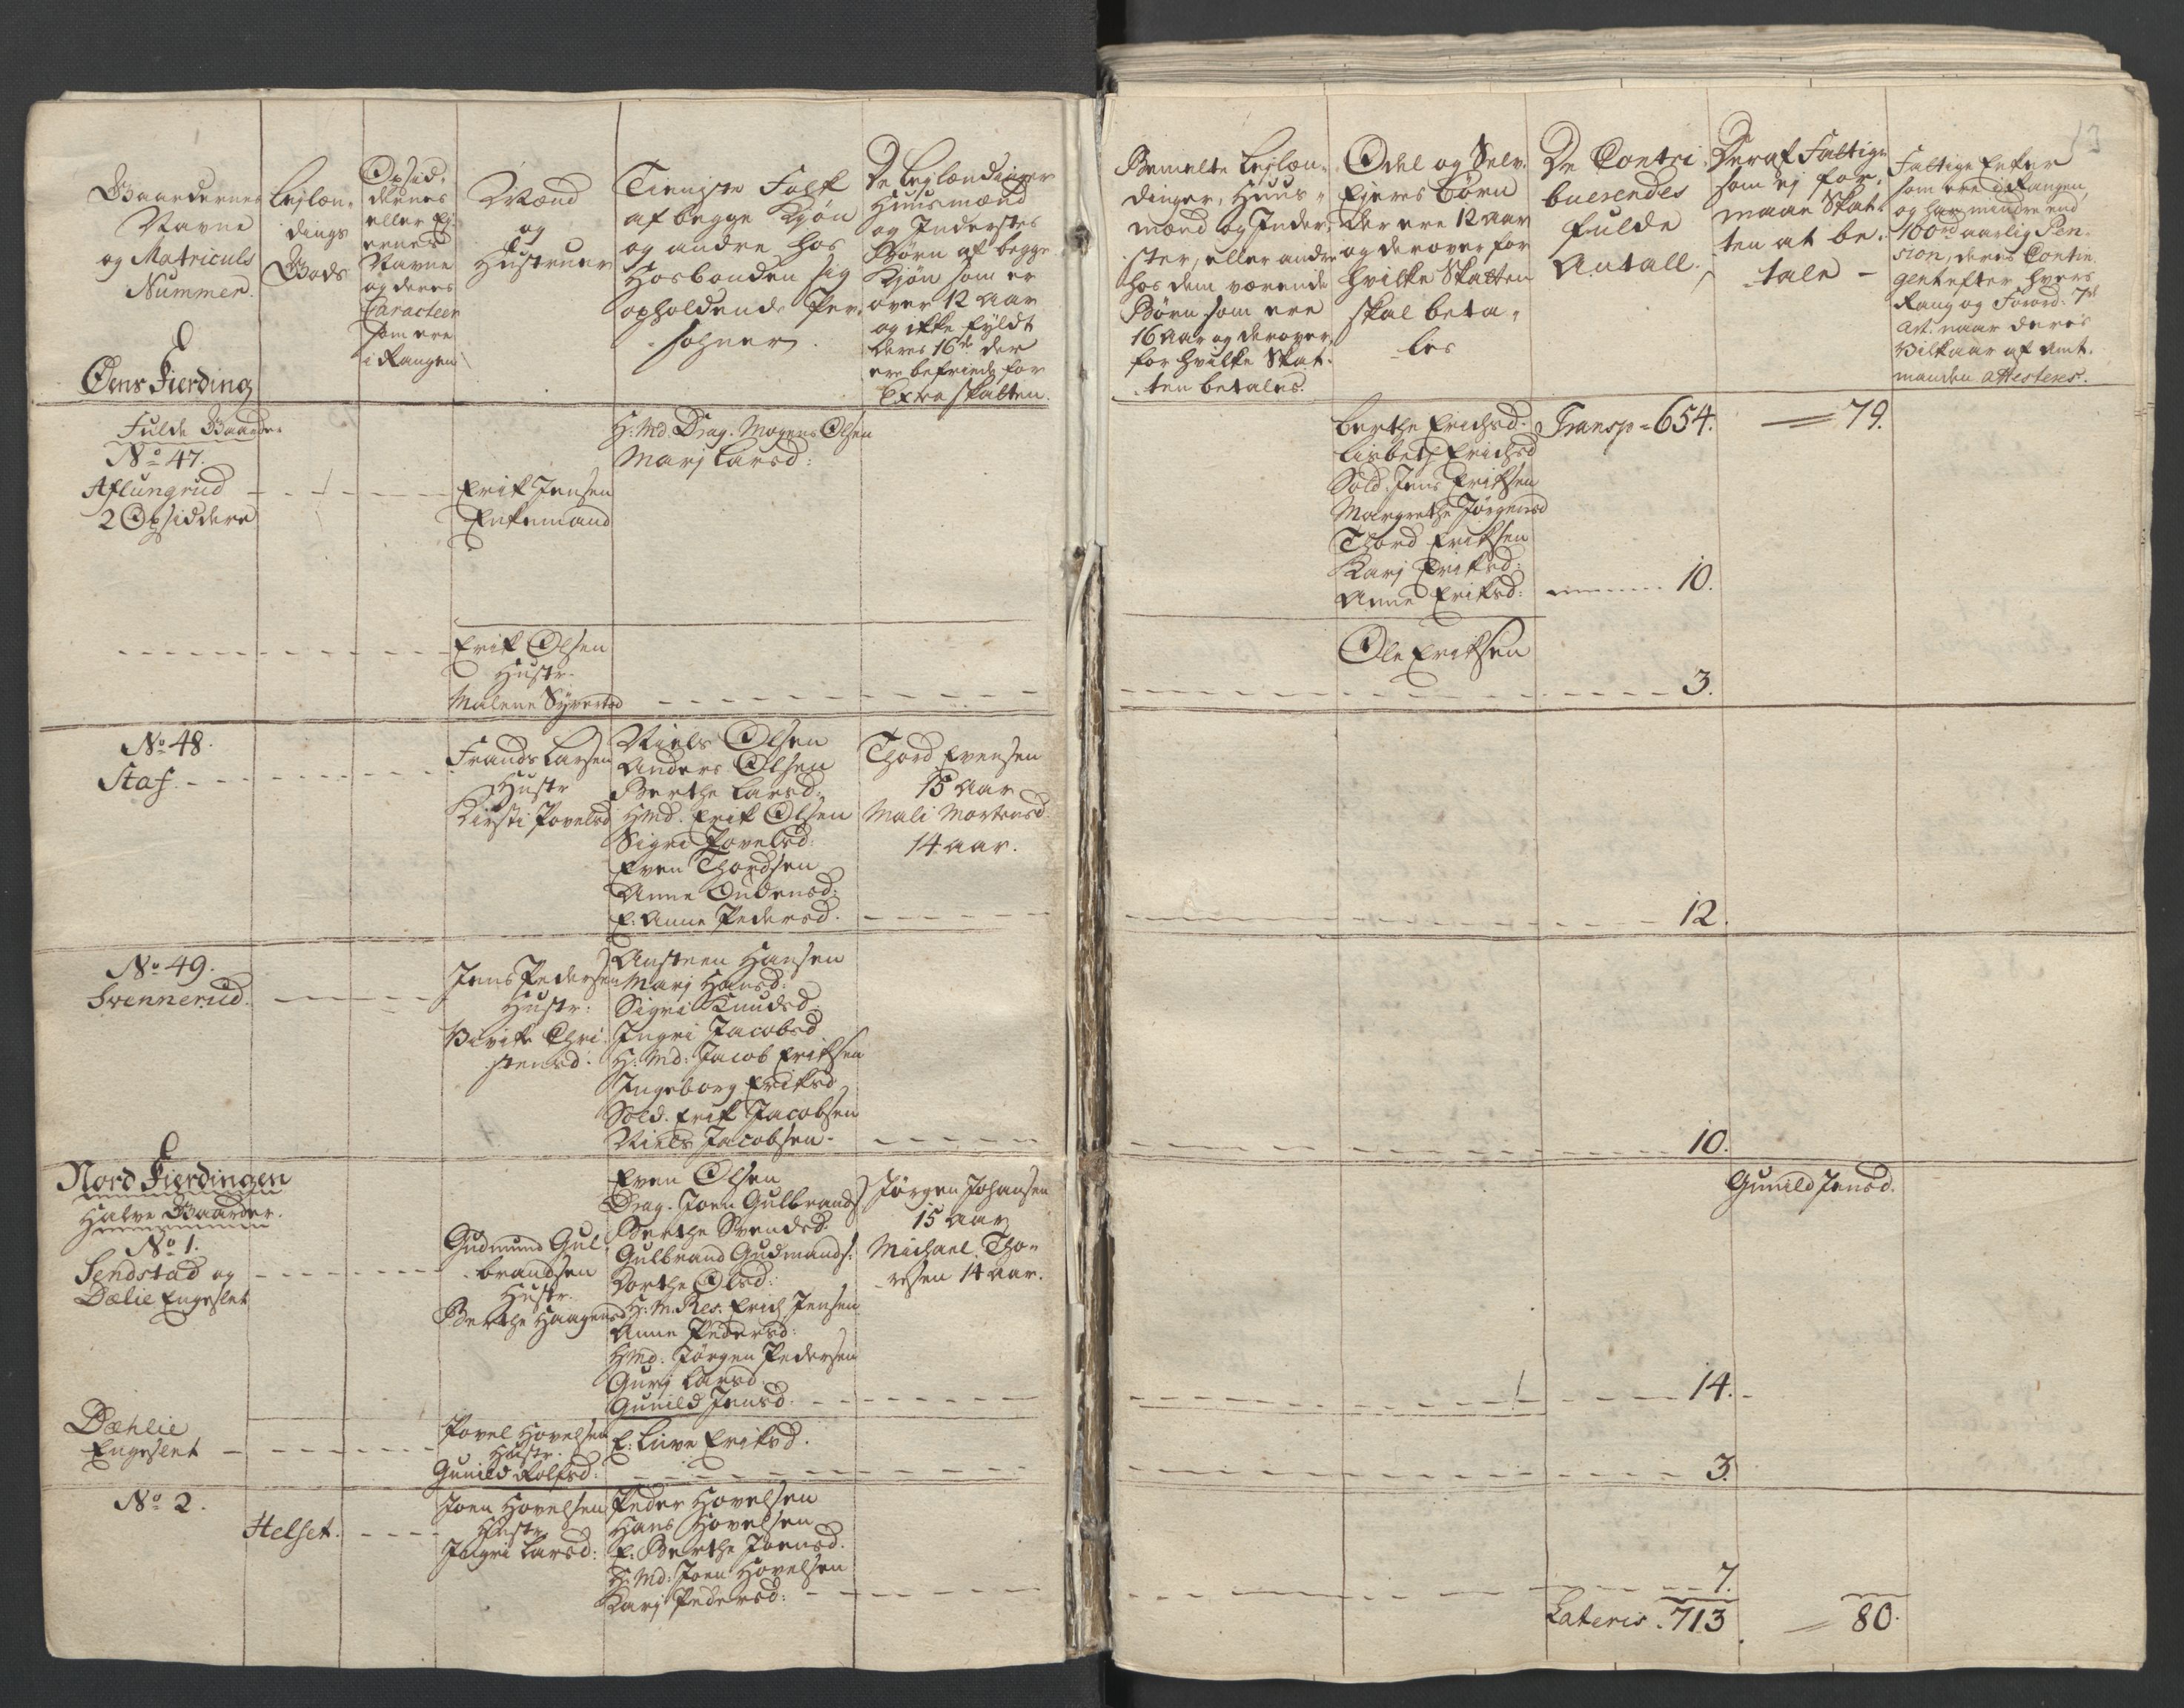 Gaardernes
Navne
og Matriculs
Nummer.
Leylæn-
dings
Gods
Opsid-
dernes
eller Ej-
ernes
Navne
og deres
Caracteer
som ere
i Rangen
Mænd
og
Hustruer
Tieniste Folk
af begge Kjøn
og andre hos
Hosbonden sig
opholdende Per-
sohner.
De Leylændinger
Huusmænd
og Inderstes
Børn af begge
Kjøn som er
over 12 Aar
og ikke fyldt
deres 16de der
ere befriede for
Extraskatten.
Bemelte Leylæn-
dinger, Huus-
mænd og Inder-
ster, eller andre
hos dem værende
Børn som ere
16 Aar og derover
for hvilke Skat-
ten betales.
Odel og Selv-
Ejeres Børn
der ere 12 Aar
og derover for
hvilke Skatten
skal beta-
les
De Contri-
buerendes
fulde
Antall.
Deraf Fattige
som ej for-
maae Skat-
ten at be-
tale -
Fattige Enker
som ere i Rangen,
og har mindre end
100rd aarlig Pen-
sion, deres Contin-
gent efter hvers
Rang og Forord: 7de
Art: naar deres
Vilkaar af Amt-
manden attesteres.
13
Øens Fierding
Fulde Gaarder
No 47.
Aflungrud
2 Opsiddere
Erik Jensen
Enkemand
H: Md. Drag. Mogens Olsen
Marj Larsd:
Berthe Erichsd.
Lisbet Erichsd
Sold. Jens Eriksen
Margrethe Jørgensd
Thord Eriksen
Karj Eriksd:
Anne Eriksd:
Transp = 654.
79.
10.
Erik Olsen
Hustr.
Malene Syvertsd
Ole Eriksen
3.
No 48.
Staf.
Frands Larsen
Hustr
Kirsti Povelsd
Niels Olsen
Anders Olsen
Berthe Larsd:
HMd. Erik Olsen
Sigri Povelsd:
Even Thordsen
Anne Oudensd:
E: Anne Pedersd.
Thord Evensen
15 Aar
Mali Mortensd.
14 aar.
12.
No 49.
Svennerud.
Jens Pedersen
Hustr:
Vivike Chri-
stensd.
Austeen Hansen
Marj Hansd:
Sigri Knudsd
Ingri Jacobsd
H: Md: Jacob Eriksen
Ingeborg Eriksd
Sold. Erik Jacobsen
Niels Jacobsen -
10.
Nord Fierdingen
Halve Gaarder.
No 1.
Sendstad og
Dælie Engeslet
Gudmund Gul-
brandsen
Hustr.
Berthe Haagensd
Even Olsen
Drag. Joen Gulbrands
Berthe Svendsd.
Gulbrand Gudmands:
Dorthe Olsd:
H: M. Res. Erich Jensen
Anne Pedersd:
HMd: Jørgen Pedersen
Gurj Larsd
Gunild Jensd.
Jørgen Johansen
15 Aar
Michael Tho-
resen 14 Aar.
Gunild Jensd.
14.
Dæhlie
Engeslet
Povel Hovelsen
Hustr.
Gunild Rolfsd:
E: Live Eriksd.
3.
No 2.
Helset.
Joen Hovelsen
Hustr
Ingri Larsd:
Peder Hovelsen
Hans Hovelsen
E. Berthe Joensd.
H: Md: Joen Hovelsen
Karj Pedersd:
7.
Lateris. 713
80.